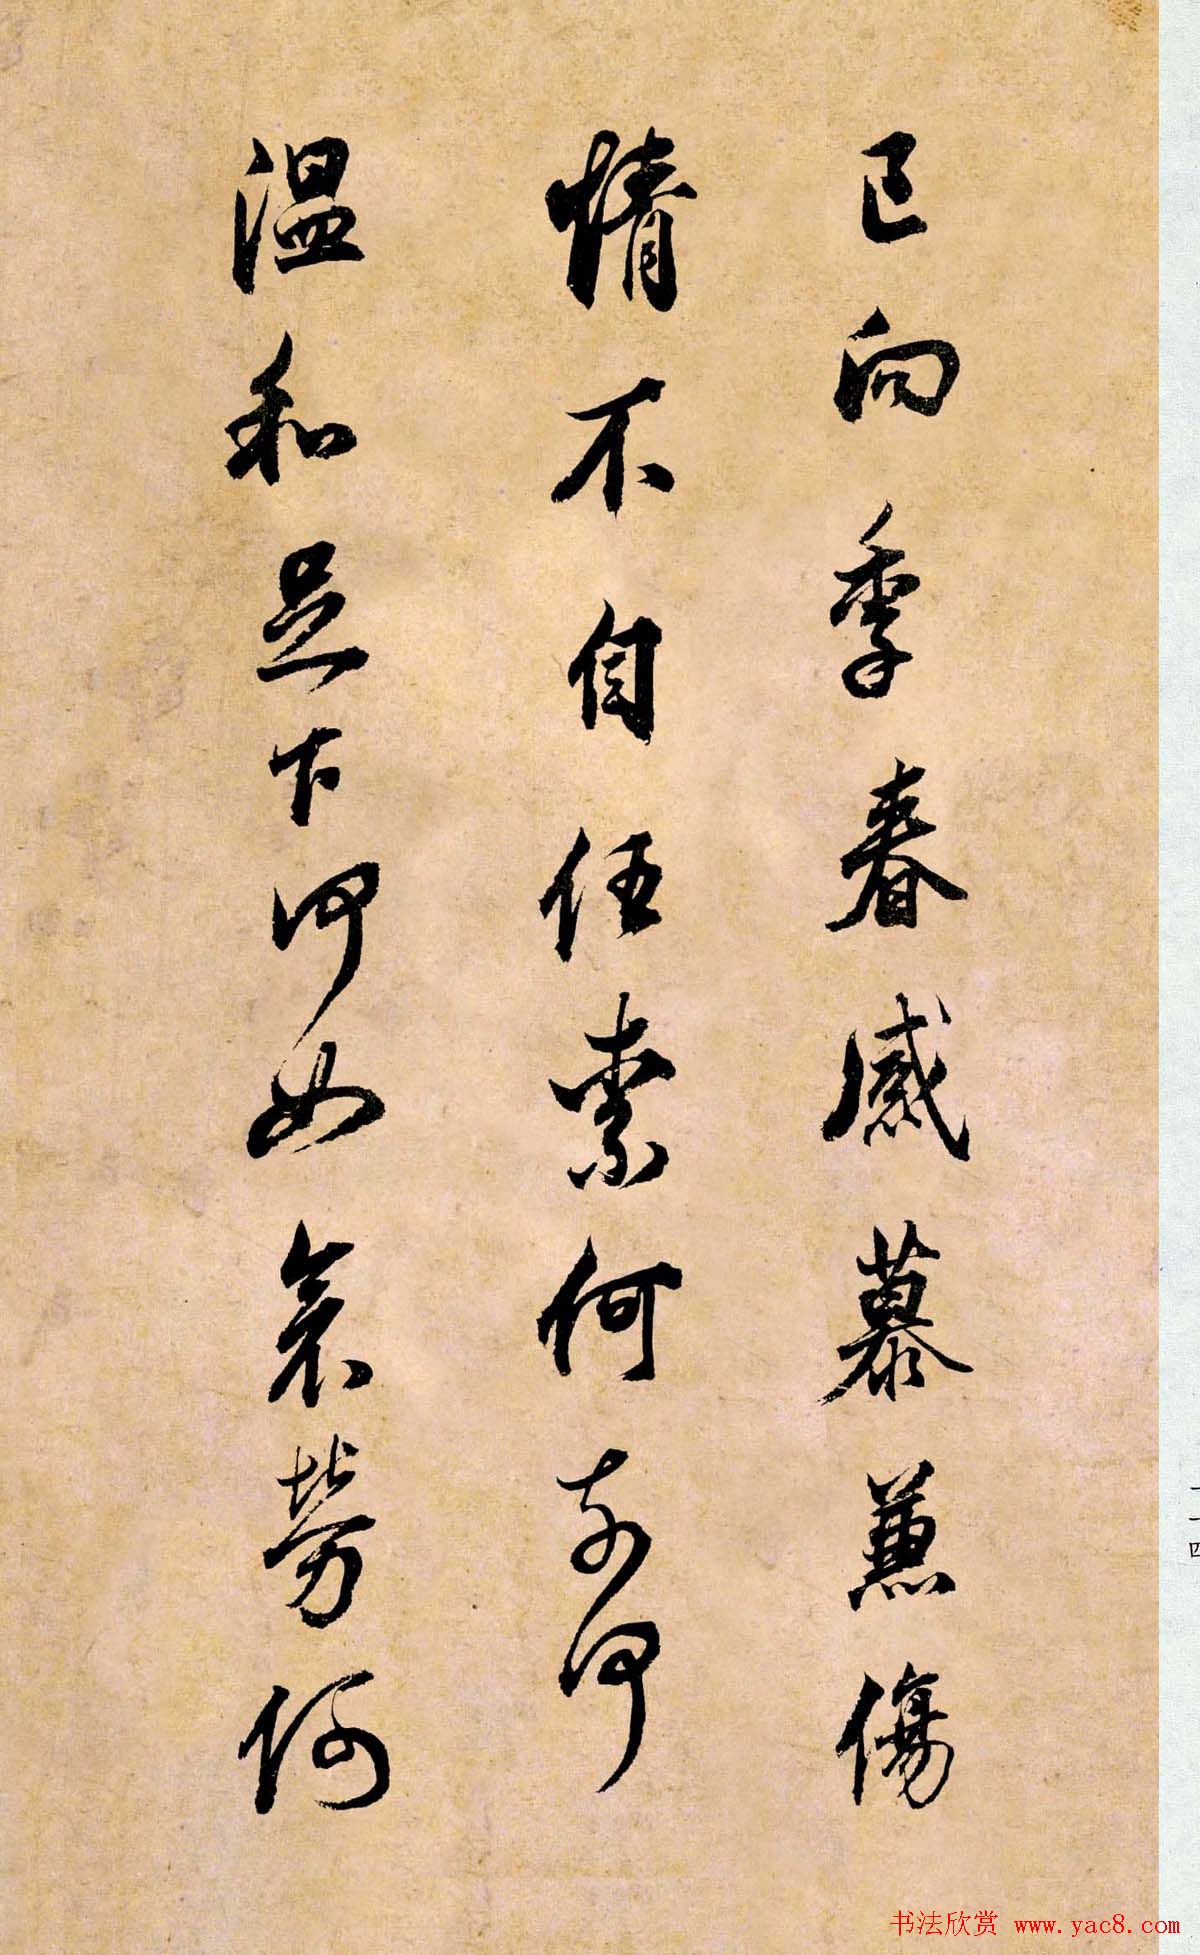 已向季春感慕兼傷
情不自任奈何奈何
温和足下何如哀勞何
书法欣赏 www.yac8.com